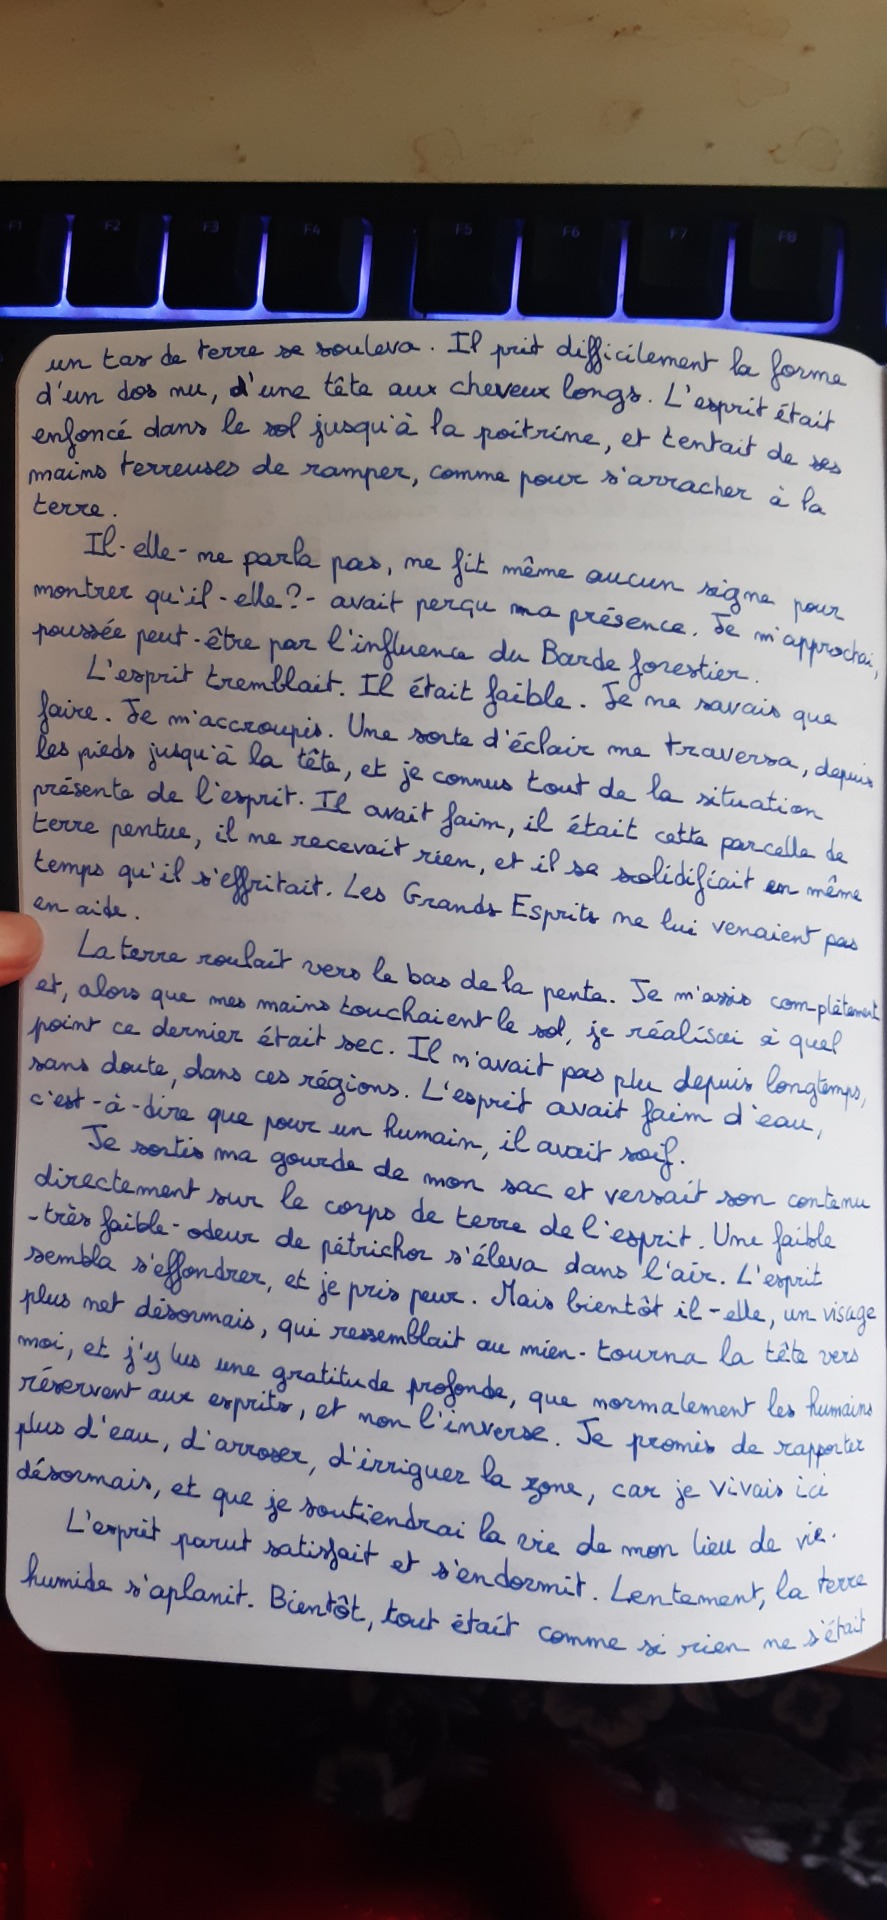 F1 F2 F3 F4 F5 F6 F7 F8
un tas de terre se souleva. Il prit difficilement la forme
d'un dos nu, d'une tête aux cheveux longs. L'esprit était
enfoncé dans le sol jusqu'à la poitrine, et tentait de ses
mains terreuses de ramper, comme pour s'arracher à la
terre.
Il-elle-ne parla pas, ne fit même aucun signe pour
montrer qu'il-elle?-avait perçu ma présence. Je m'approchai,
poussée peut-être par l'influence du Barde forestier.
L'esprit tremblait. Il était faible. Je ne savais que
faire. Je m'accroupis. Une sorte d'éclair me traversa, depuis
les pieds jusqu'à la tête, et je connus tout de la situation
présente de l'esprit. Il avait faim, il était cette parcelle de
terre pentue, il ne recevait rien, et il se solidifiait en même
temps qu'il s'effritait. Les Grands Esprits ne lui venaient pas
en aide.
La terre roulait vers le bas de la pente. Je m'assis complètement
et, alors que mes mains touchaient le sol, je réalisai à quel
point ce dernier était sec. Il n'avait pas plu depuis longtemps,
sans doute, dans ces régions. L'esprit avait faim d'eau,
c'est-à-dire que pour un humain, il avait soif.
Je sortis ma gourde de mon sac et versait son contenu
directement sur le corps de terre de l'esprit. Une faible
-très faible-odeur de pétrichor s'éleva dans l'air. L'esprit
sembla s'effondrer, et je pris peur. Mais bientôt il-elle, un visage
plus net désormais, qui ressemblait au mien-tourna la tête vers
moi, et j'y lus une gratitude profonde, que normalement les humains
réservent aux esprits, et non l'inverse. Je promis de rapporter
plus d'eau, d'arroser, d'irriguer la zone, car je vivais ici
désormais, et que je soutiendrai la vie de mon lieu de vie.
L'esprit parut satisfait et s'endormit. Lentement, la terre
humide s'aplanit. Bientôt, tout était comme si rien ne s'était